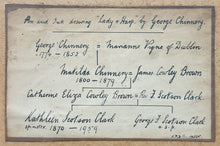 Pen and Ink drawing "Lady & Harp" by George Chinnery.
George Chinnery = Marianne Vigne of Dublin
1774 - 1852
Matilda Chinnery = James Cowley Brown
1800 - 1879
Catherine Eliza Cowley Brown = Rev. F. Scotson Clark
Kathleen Scotson Clark George F. Scotson Clark
spinster 1870 - 1959